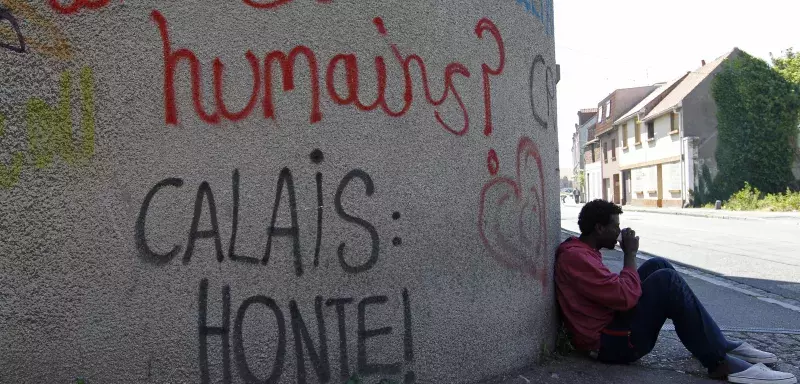 humains?
CALAiS:
HONTE!